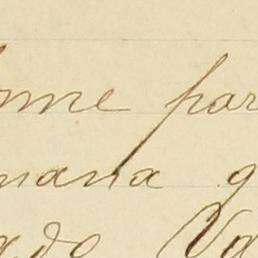 me par
mana g
ado Va